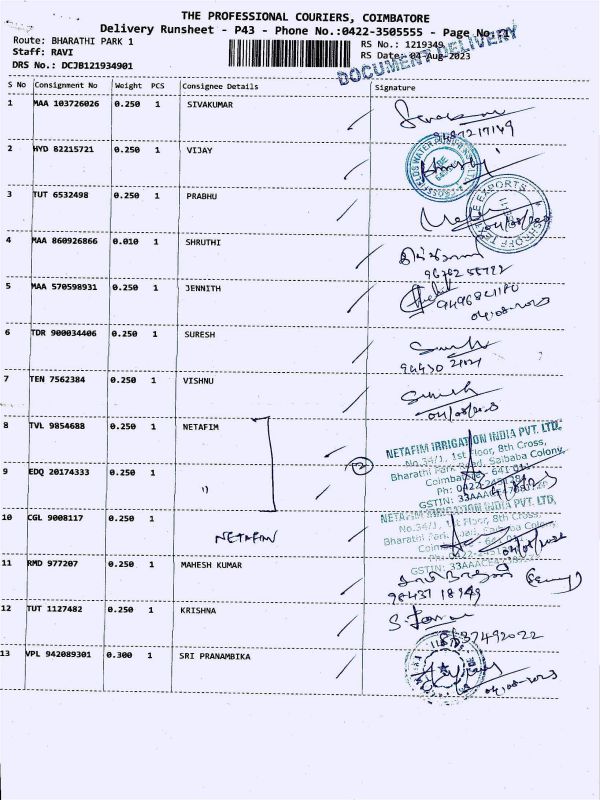 THE PROFESSIONAL COURIERS, COIMBATORE
Delivery Runsheet - P43 - Phone No.:0422-3505555 - Page No.:
Route: BHARATHI PARK 1
RS No.: 1219349
Staff: RAVI
RS Date: 04-Aug-2023
DRS No.: DCJB121934901
DOCUMENT DELIVERY
S No Consignment No Weight PCS Consignee Details Signature
1 MAA 103726026 0.250 1 SIVAKUMAR
2 HYD 82215721 0.250 1 VIJAY
3 TUT 6532498 0.250 1 PRABHU
04/08/2023
4 MAA 860926866 0.010 1 SHRUTHI
5 MAA 570598931 0.250 1 JENNITH
04-08-2023
6 TDR 900034406 0.250 1 SURESH
94430 21021
7 TEN 7562384 0.250 1 VISHNU
04/08/2023
8 TVL 9854688 0.250 1 NETAFIM
NETAFIM IRRIGATION INDIA PVT. LTD.
No.34/1, 1st Floor, 8th Cross,
Bharathi Park Road, Saibaba Colony,
Coimbatore - 641 011
9 EDQ 20174333 0.250 1 "
NETAFIM IRRIGATION INDIA PVT. LTD.
No.34/1, 1st Floor, 8th Cross,
10 CGL 9008117 0.250 1 NETAFIM
11 RMD 977207 0.250 1 MAHESH KUMAR
98437 18949
12 TUT 1127482 0.250 1 KRISHNA
13 VPL 942089301 0.300 1 SRI PRANAMBIKA
04-08-2023